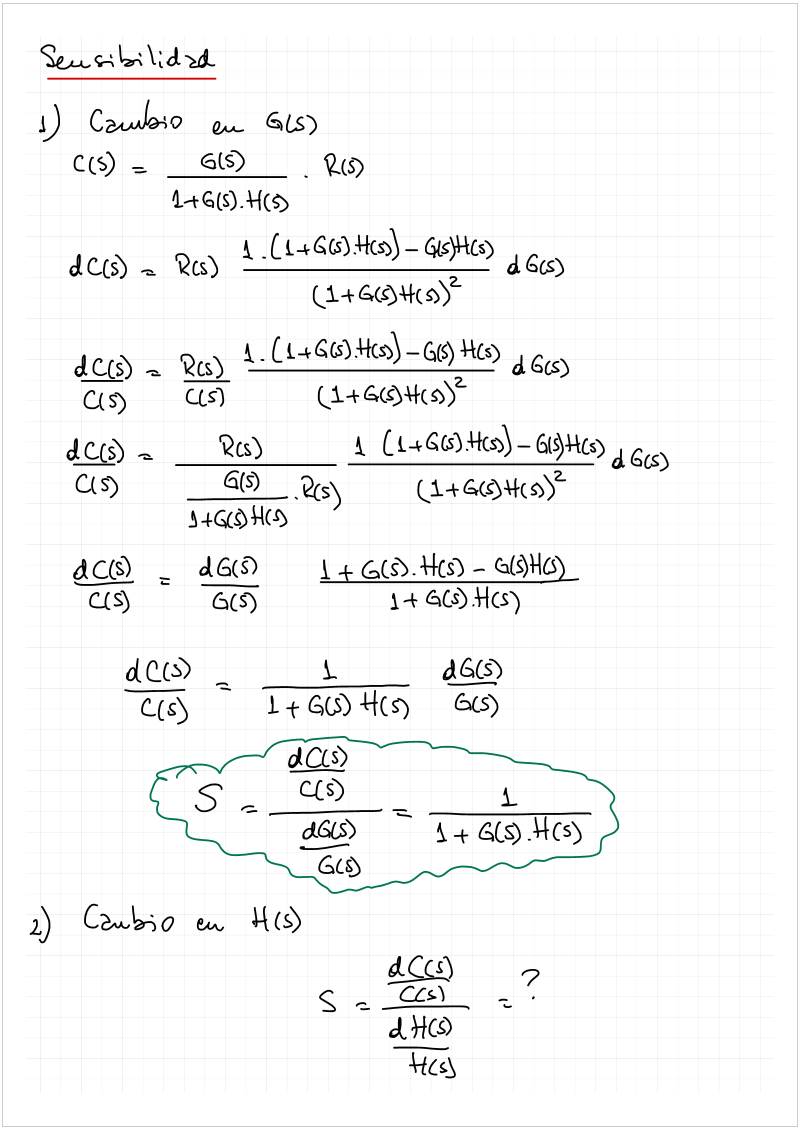 Sensibilidad
1) Cambio en G(s)
C(s) = G(s) / (1+G(s).H(s)) . R(s)
dC(s) = R(s) (1.(1+G(s).H(s)) - G(s)H(s)) / (1+G(s)H(s))² dG(s)
dC(s)/C(s) = R(s)/C(s) (1.(1+G(s).H(s)) - G(s)H(s)) / (1+G(s)H(s))² dG(s)
dC(s)/C(s) = R(s) / (G(s)/(1+G(s)H(s)) . R(s)) (1 (1+G(s).H(s)) - G(s)H(s)) / (1+G(s)H(s))² dG(s)
dC(s)/C(s) = dG(s)/G(s) (1 + G(s).H(s) - G(s)H(s)) / (1 + G(s).H(s))
dC(s)/C(s) = 1 / (1 + G(s) H(s)) dG(s)/G(s)
S = (dC(s)/C(s)) / (dG(s)/G(s)) = 1 / (1 + G(s).H(s))
2) Cambio en H(s)
S = (dC(s)/C(s)) / (dH(s)/H(s)) = ?